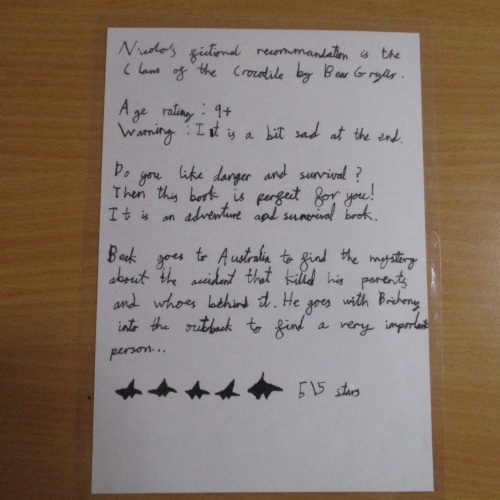 Nicolo's fictional recommandation is the
Claws of the Crocodile by Bear Grylls.
Age rating : 9+
Warning : It is a bit sad at the end.
Do you like danger and survival ?
Then this book is perfect for you!
It is an adventure and survival book.
Beck goes to Australia to find the mystery
about the accident that killed his parents
and whoes behind it. He goes with Brihony
into the outback to find a very important
person...
5\5 stars